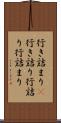 行き詰まり
行き詰り行詰
り行詰まり